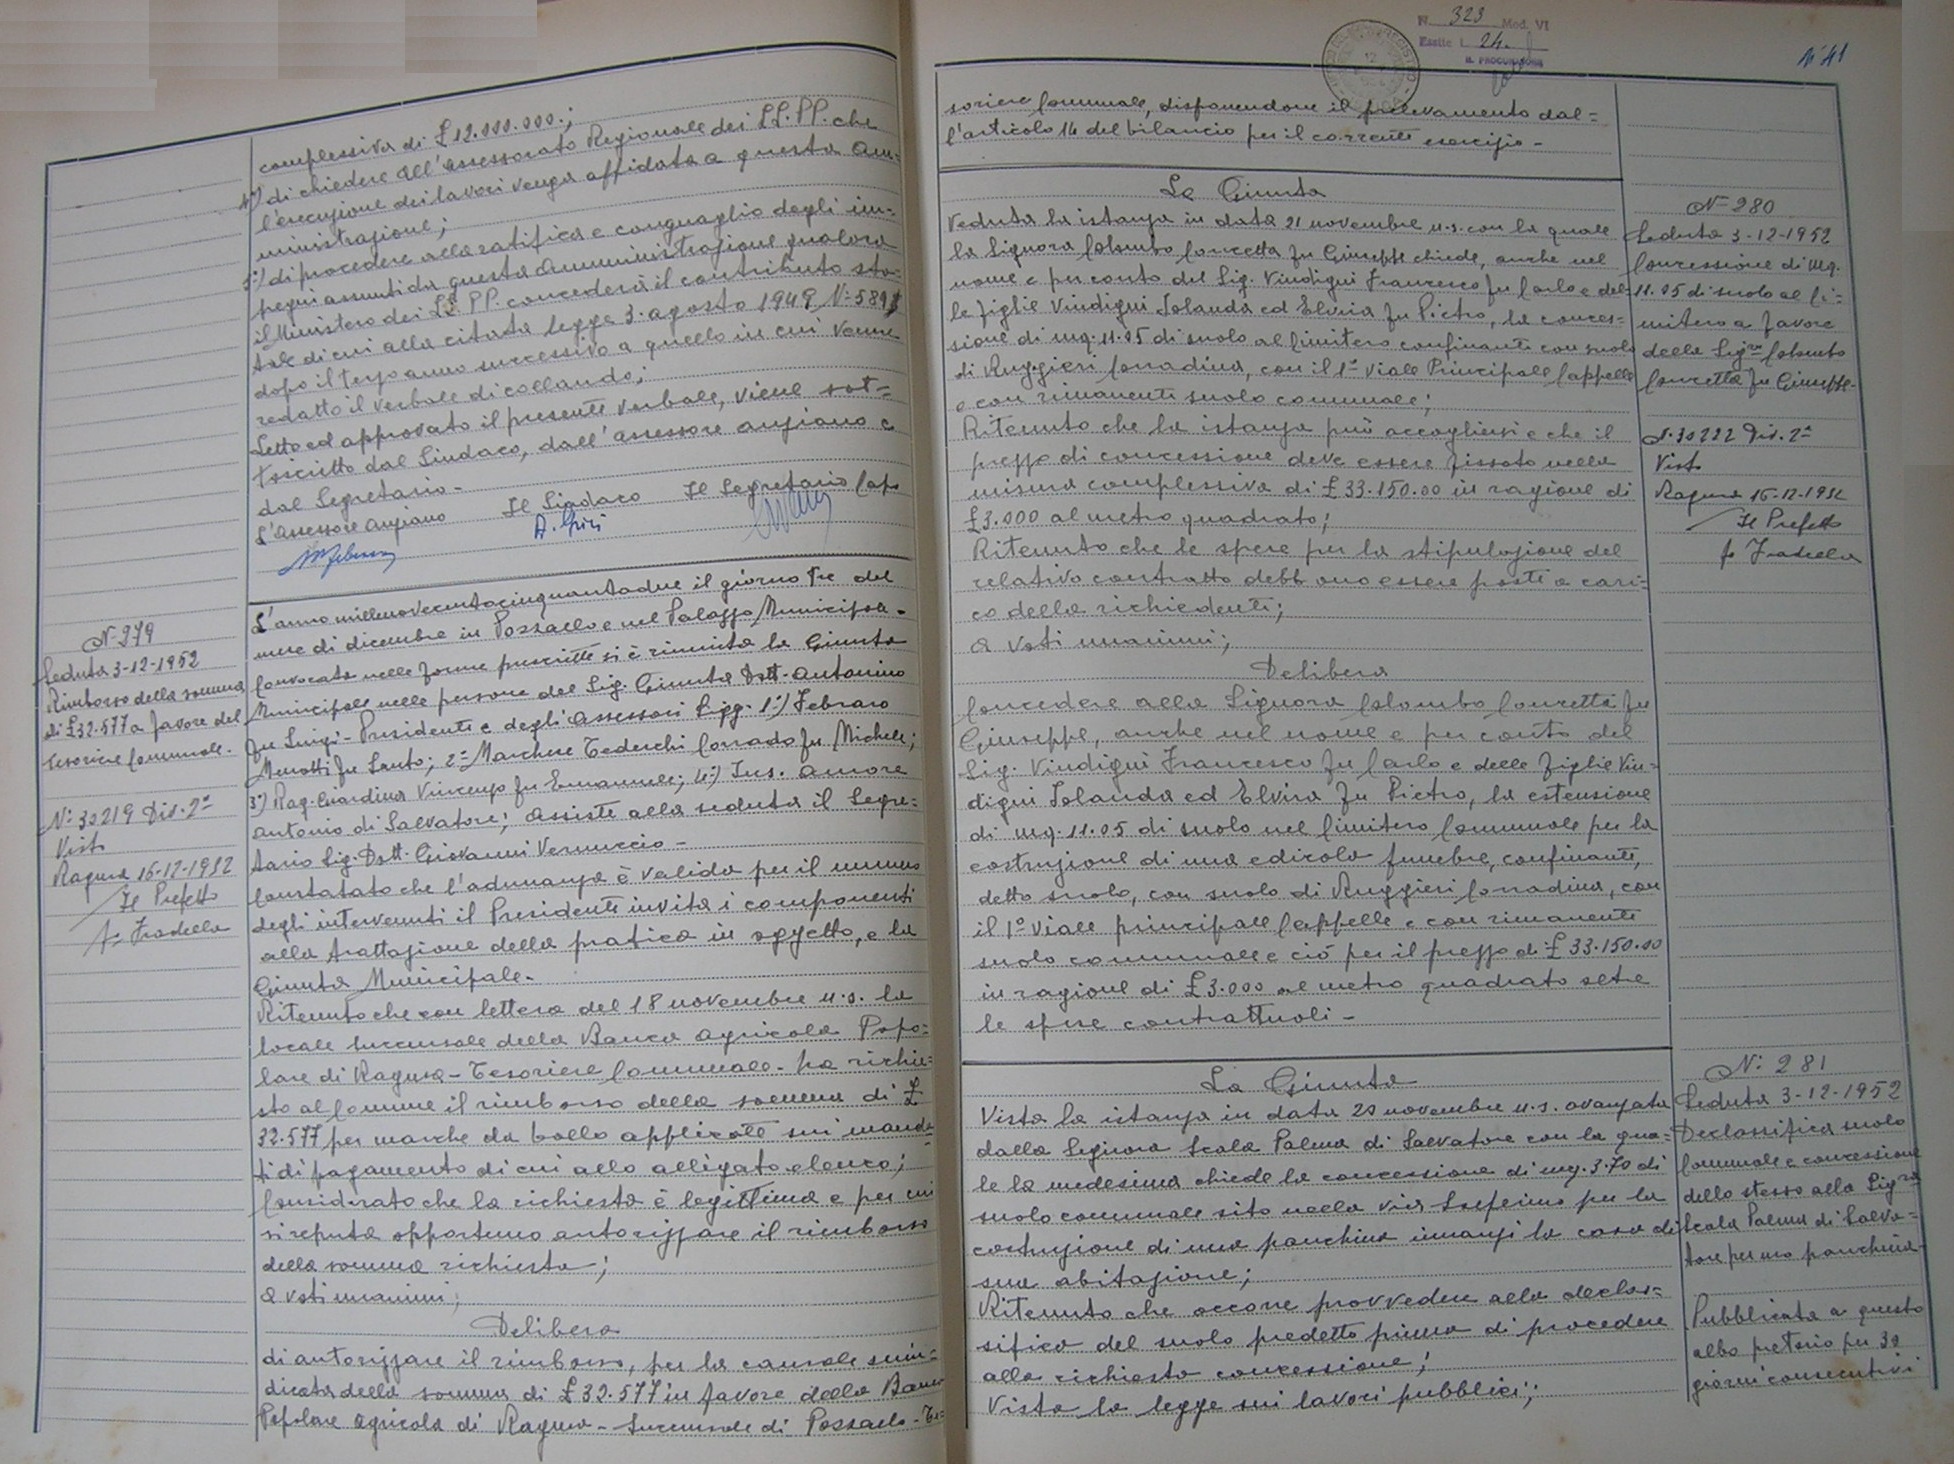 complessiva di £12.000.000.;
4°) di chiedere all'assessorato Regionale dei LL.PP. che
l'esecuzione dei lavori venga affidata a questa am=
ministrazione;
5°) di procedere alla ratifica e conguaglio degli im-
pegni assunti da questa Amministrazione qualora
il Ministero dei LL.PP. concederà il contributo sta=
tale di cui alla citata legge 3 agosto 1949 N. 589
dopo il terzo anno successivo a quello in cui venne
redatto il verbale di collaudo;
Letto ed approvato il presente verbale, viene sot=
toscritto dal Sindaco, dall'assessore anziano e
dal Segretario-
L'Assessore anziano Il Sindaco Il Segretario Capo
N° 279
Seduta 3-12-1952
Rimborso della somma
di £32.577 a favore del
Tesoriere Comunale.
N° 30219 Div. 2ª
Visto
Ragusa 16-12-1952
Il Prefetto
L'anno millenovecentocinquantadue il giorno tre del
mese di dicembre in Pozzallo e nel Palazzo Municipa-
Convocata nelle forme prescritte si è riunita la Giunta
Municipale nelle persone del Sig. Giunta Dott. Antonino
fu Luigi - Presidente e degli Assessori Sigg. 1°) Febraro
Menotti fu Santo; 2° Marchese Tedeschi Corrado fu Michele;
3°) Rag. Guardina Vincenzo fu Emanuele; 4°) Ins. Amore
Antonio di Salvatore; Assiste alla seduta il Segre=
tario Sig. Dott. Giovanni Vernuccio -
Constatato che l'adunanza è valida per il numero
degli intervenuti il Presidente invita i componenti
alla trattazione della pratica in oggetto, e la
Giunta Municipale.
Ritenuto che con lettera del 18 novembre u.s. la
locale Succursale della Banca Agricola Popo=
lare di Ragusa - Tesoriere Comunale - ha richie=
sto al Comune il rimborso della somma di £
32.577 per marche da bollo applicate sui manda
ti di pagamento di cui allo alligato elenco;
Considerato che la richiesta è legittima e per cui
si reputa opportuno autorizzare il rimborso
della somma richiesta;
a voti unanimi;
Delibera
di autorizzare il rimborso, per la causale suin=
dicata della somma di £32.577 in favore della Banca
Popolare Agricola di Ragusa - Succursale di Pozzallo - Te=
N. 323 Mod. VI
Esatte L. 24.
IL PROCURATORE
N° 41
soriere Comunale, disponendone il prelevamento dal=
l'articolo 14 del bilancio per il corrente esercizio -
La Giunta
Veduta la istanza in data 21 novembre u.s. con la quale
la Signora Colombo Concetta fu Giuseppe chiede, anche nel
nome e per conto del Sig. Vindigni Francesco fu Carlo e del=
le figlie Vindigni Iolanda ed Elvira fu Pietro, la conces=
sione di mq. 11.05 di suolo al Cimitero confinante con suolo
di Ruggieri Corradina, con il 1° Viale Principale Cappelle
e con rimanente suolo comunale;
Ritenuto che la istanza può accogliersi e che il
prezzo di concessione deve essere fissato nella
misura complessiva di £33.150.00 in ragione di
£3.000 al metro quadrato;
Ritenuto che le spese per la stipulazione del
relativo contratto debbono essere poste a cari=
co della richiedente;
a voti unanimi;
Delibera
Concedere alla Signora Colombo Concetta fu
Giuseppe, anche nel nome e per conto del
Sig. Vindigni Francesco fu Carlo e delle figlie Vin=
digni Iolanda ed Elvira fu Pietro, la estensione
di mq. 11.05 di suolo nel Cimitero Comunale per la
costruzione di una edicola funebre, confinante,
detto suolo, con suolo di Ruggieri Corradina, con
il 1° Viale principale Cappelle e con rimanente
suolo comunale e ciò per il prezzo di £33.150.00
in ragione di £3.000 al metro quadrato oltre
le spese contrattuali -
N° 280
Seduta 3-12-1952
Concessione di mq.
11.05 di suolo al Ci=
mitero a favore
della Sig.ra Colombo
Concetta fu Giuseppe.
N. 30222 Div. 2ª
Visto
Ragusa 16-12-1952
Il Prefetto
La Giunta
Vista la istanza in data 20 novembre u.s. avanzata
dalla Signora Scala Palma di Salvatore con la qua=
le la medesima chiede la concessione di mq. 3.70 di
suolo comunale sito nella via per la
costruzione di una panchina innanzi la casa di
sua abitazione;
Ritenuto che occorre provvedere alla declas=
sifica del suolo predetto prima di procedere
alla richiesta concessione;
Vista la legge sui lavori pubblici;
N: 281
Seduta 3-12-1952
Declassifica suolo
Comunale e concessione
dello stesso alla Sig.ra
Scala Palma di Salva=
tore per uso panchina
Pubblicata a questo
albo pretorio per 30
giorni consecutivi